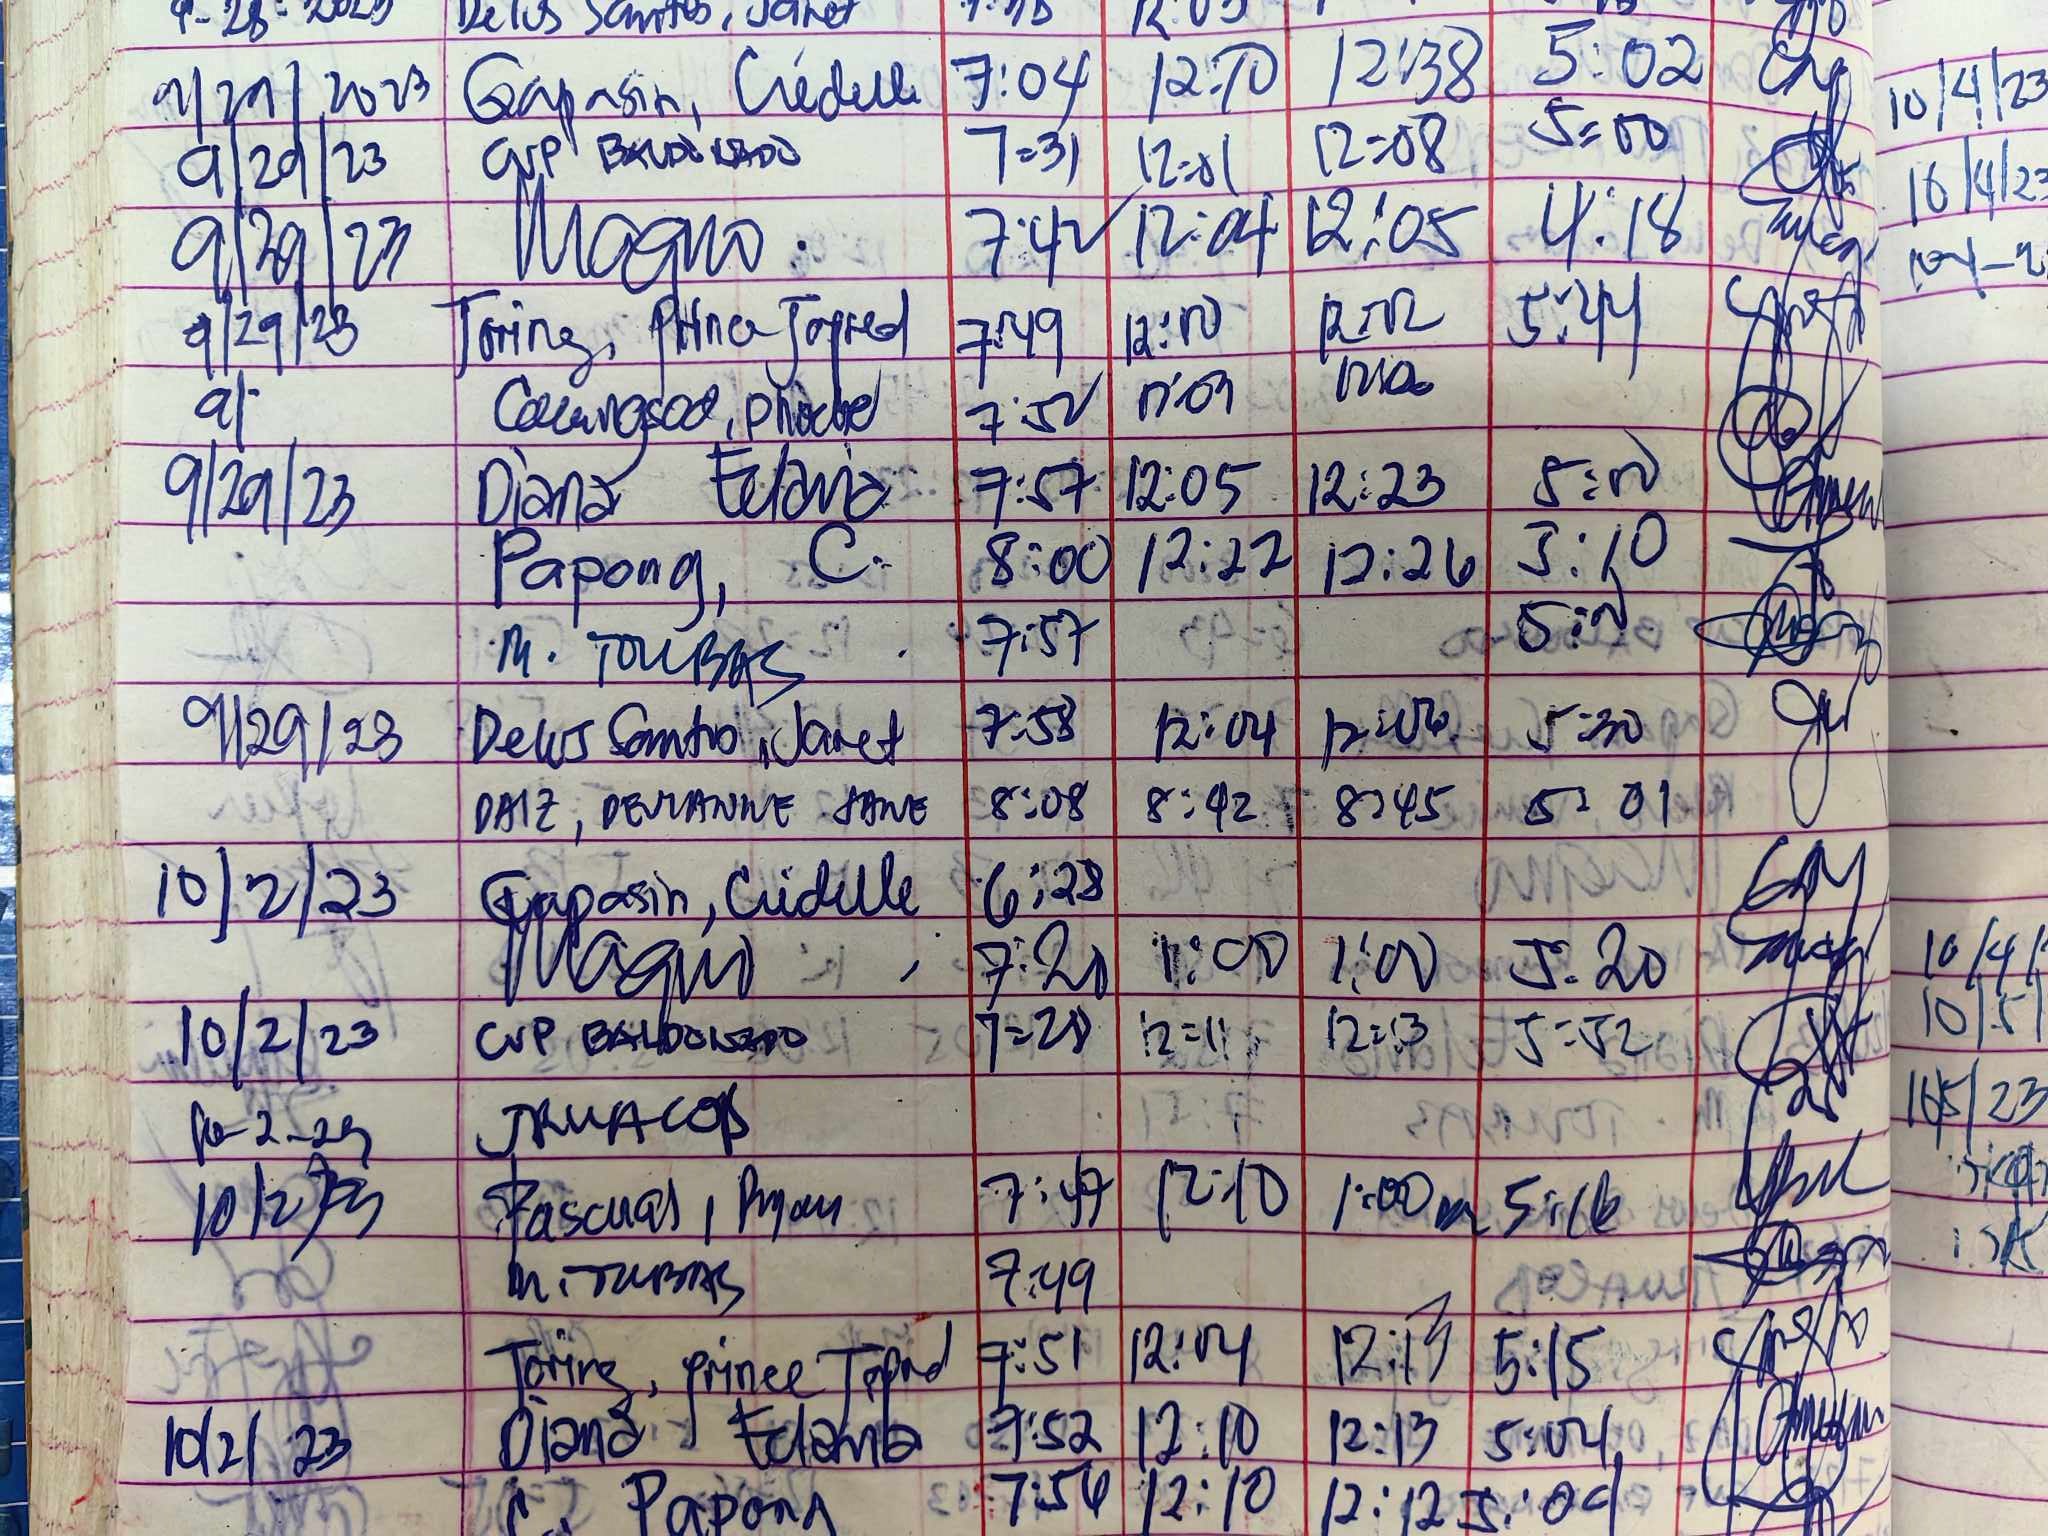 Delos Santos, Janet
9/29/2023 Gapasin, Criedelle 7:04 12:10 12:38 5:02
9/29/23 CVP BALDONADO 7=31 12=01 12=08 5=00
9/29/23 Magno 7:42 12:04 12:05 4:18
9/29/23 Toring, Prince Jopred 7:49 12:10 12:12 5:44
9/ 7:52 12:09
9/29/23 Diana Eclania 7:57 12:05 12:23 5:00
Papong, C. 8:00 12:22 12:26 5:10
M. TOLUBAS 7:57 5:00
9/29/23 Delos Santos, Janet 7:58 12:04 12:06 5:30
DAIZ, DEVIANNE JANE 8:08 8:42 8:45 5:01
10/2/23 Gapasin, Criedelle 6:28
Magno 7:20 1:00 1:00 5:20
10/2/23 CVP BALDONADO 7=28 12=11 12=13 5=52
10-2-23
10/2/23 Pascual, Ryan 7:49 12:10 1:00 5:16
7:49
Toring, Prince Jopred 7:51 12:04 12:13 5:15
10/2/23 Diana Eclania 7:52 12:10 12:13 5:04
C. Papong 7:56 12:10 12:12 5:09
10/4/23
10/4/23
10/4/
10/5/
10/5/23